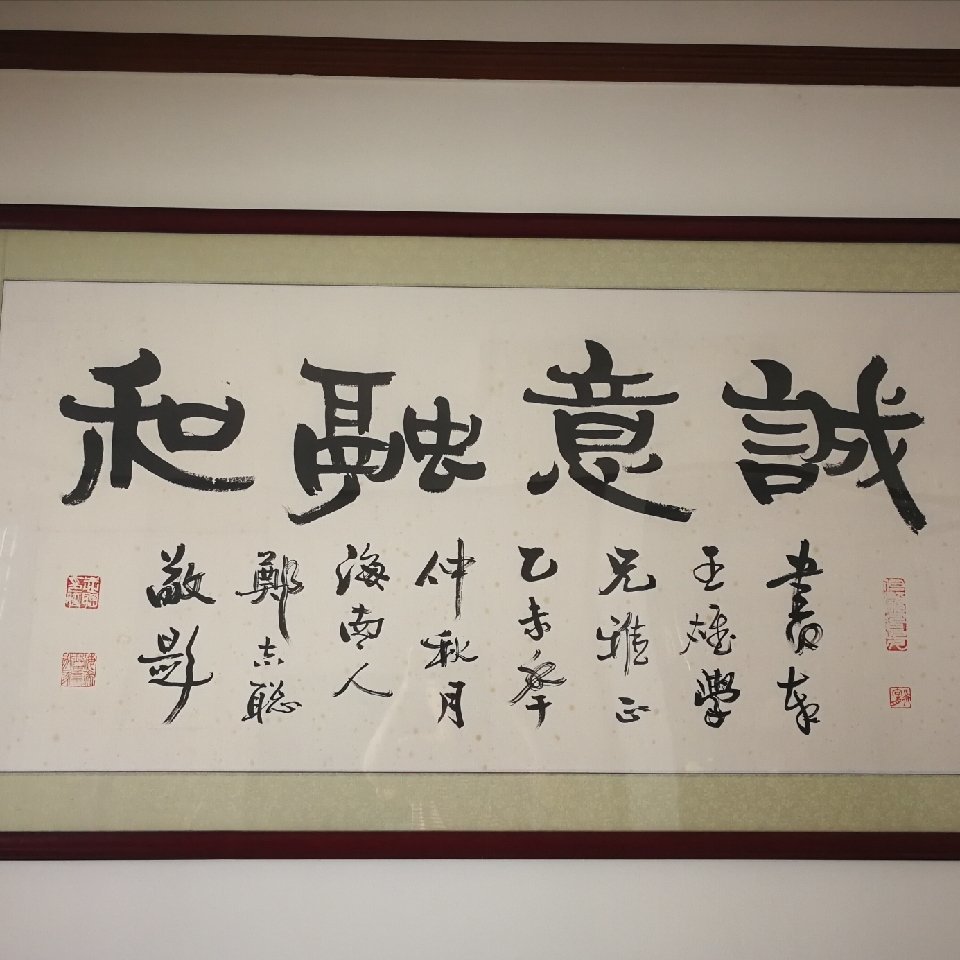 誠意融和
書奉
王雄學
兄雅正
乙未年
仲秋月
海南人
鄭志聡
敬題